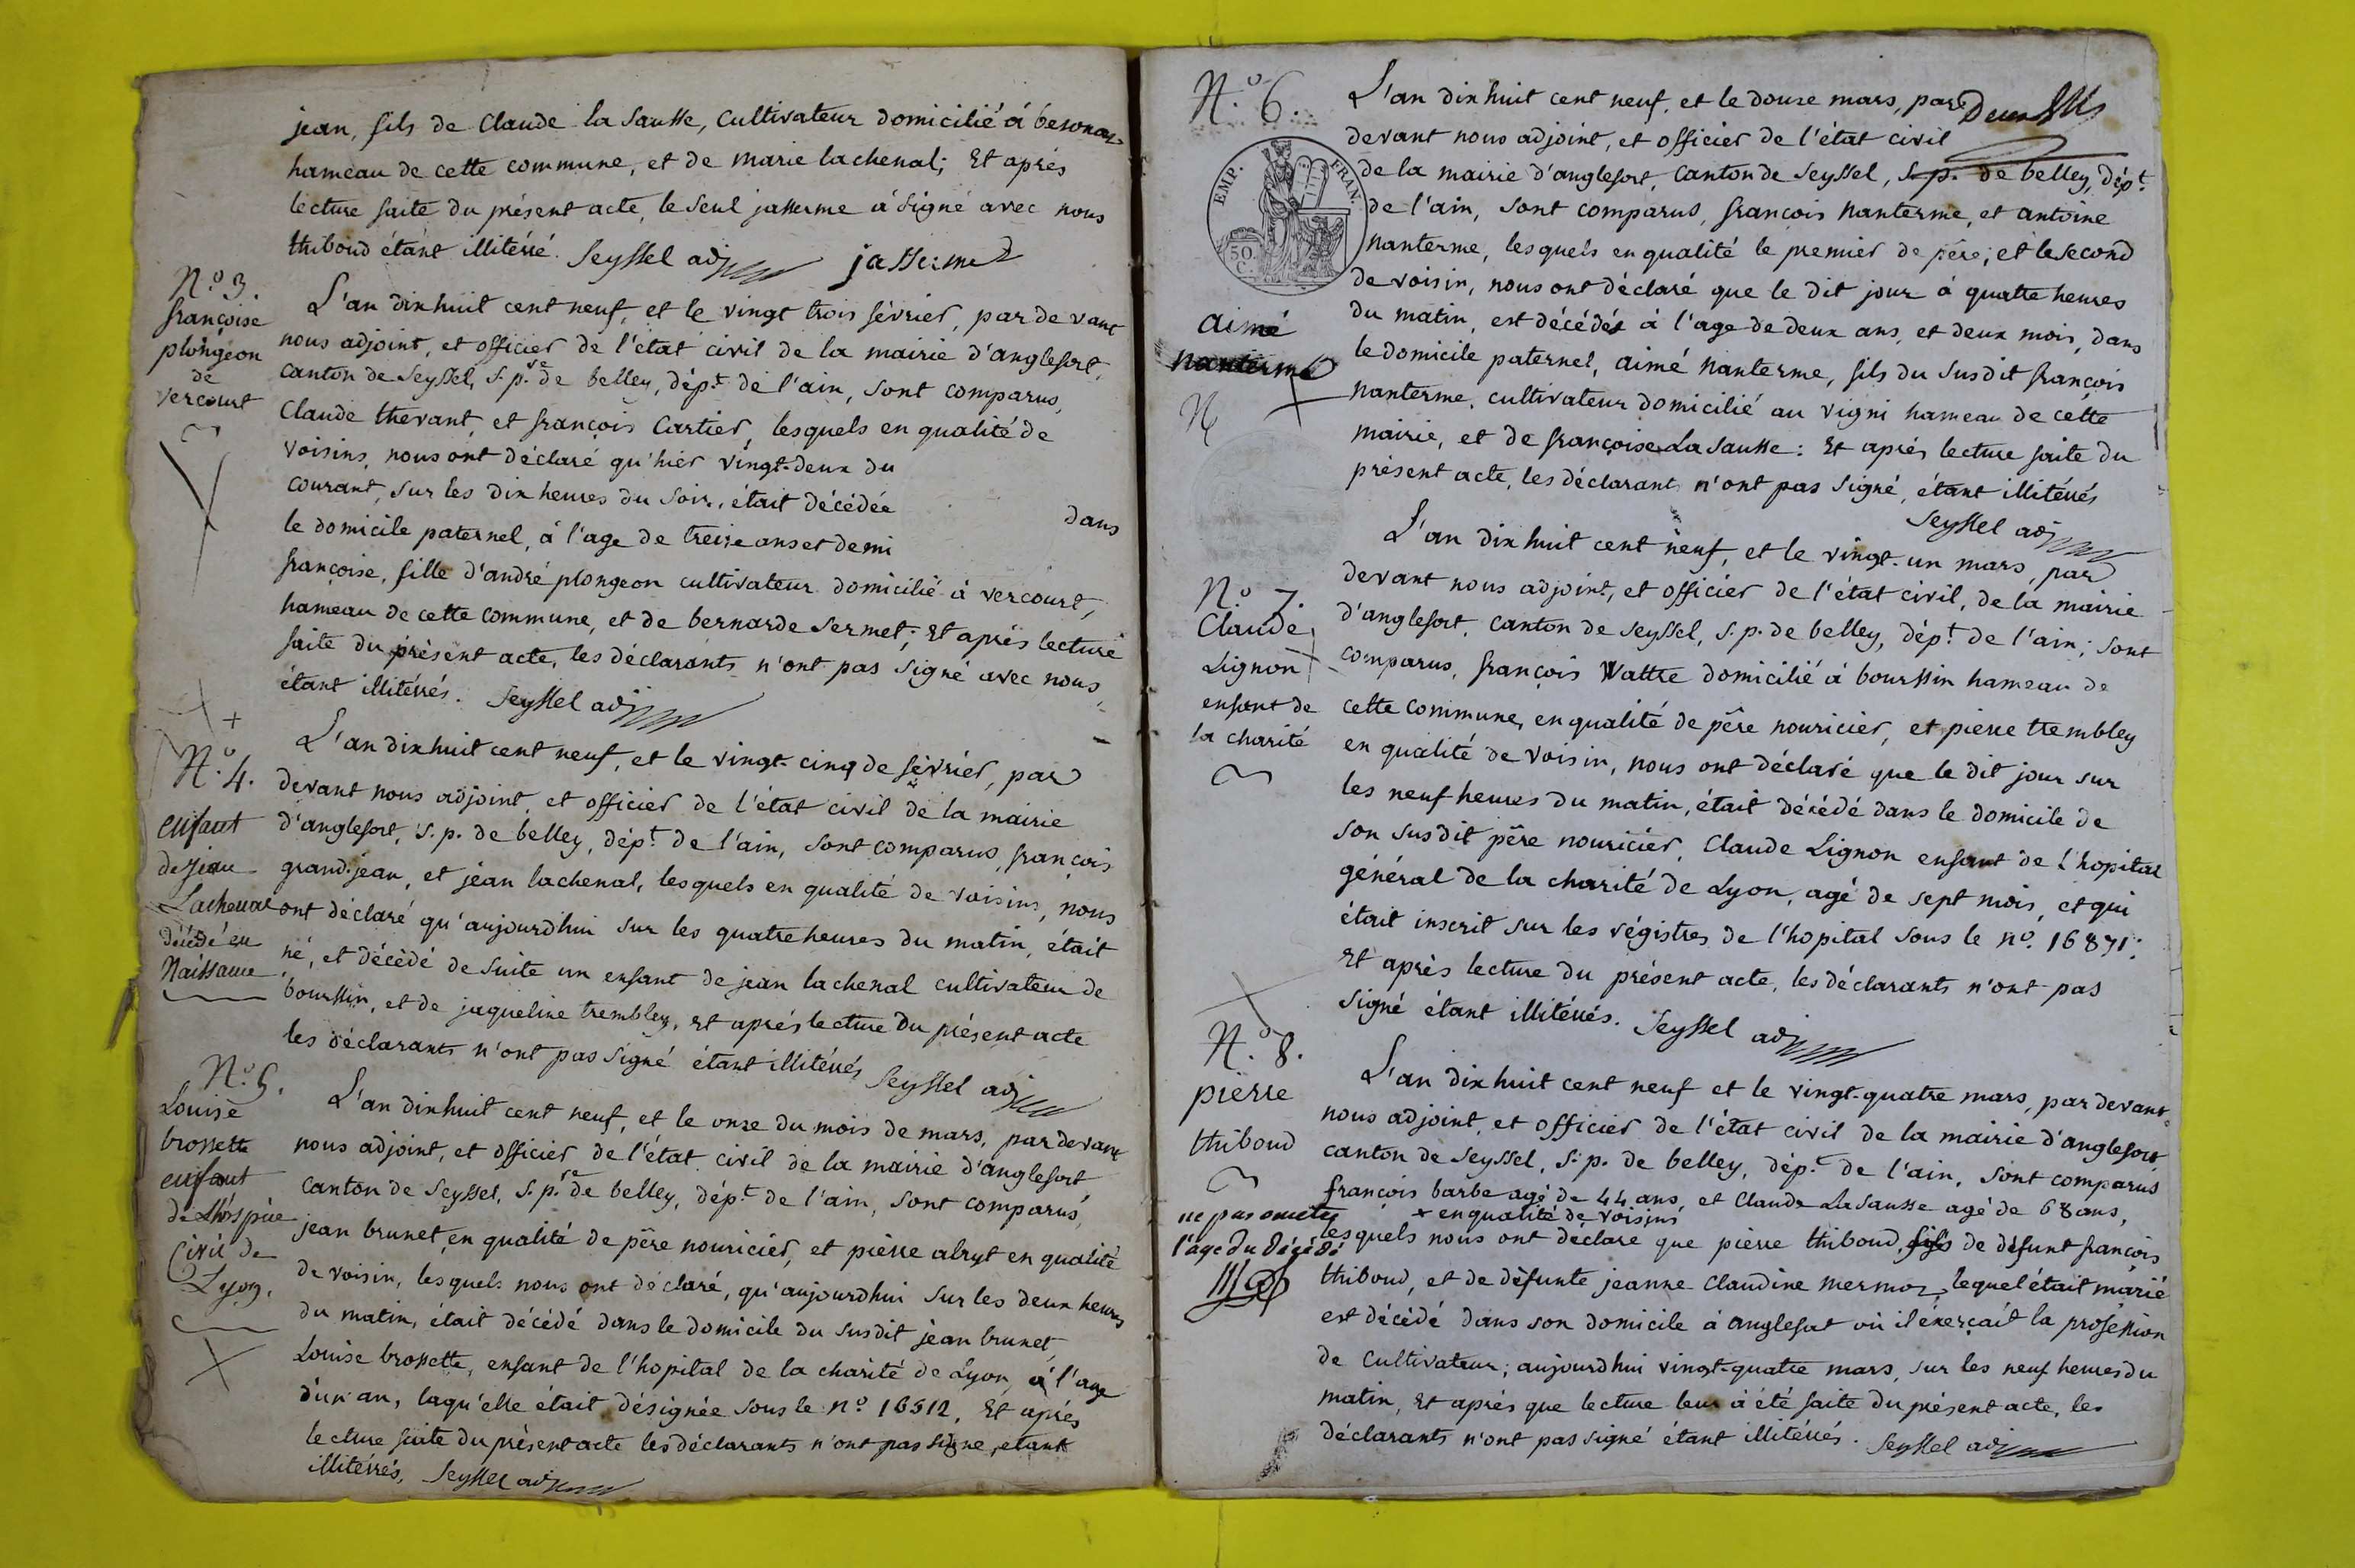 jean, fils de Claude la Sausse, Cultivateur domicilié à
hameau de cette commune, et de marie lachenal; Et après
lecture faite du présent acte, le seul jasserme à signé avec nous
thiboud étant illitéré. Seyssel adj jasserme
N.o 3.
françoise
plongeon
de
vercourt
L'an dixhuit cent neuf, et le vingt trois février, par devant
nous adjoint, et officier de l'état civil de la mairie d'anglefort,
canton de Seyssel, s. p.re de belley, dép.t de l'ain, sont comparus,
Claude thevant, et françois Cartier, lesquels en qualité de
voisins, nous ont déclaré qu'hier vingt-deux du
courant, sur les dix heures du soir, était décédée dans
le domicile paternel, à l'age de treize ans et demi
françoise, fille d'andré plongeon cultivateur domicilié à vercourt,
hameau de cette commune, et de bernarde Sermet; Et après lecture
faite du présent acte, les déclarants n'ont pas signé avec nous,
étant illitérés. Seyssel adj
N.o 4.
enfant
de jean
Lachenal
décédé en
Naissance
L'an dixhuit cent neuf, et le vingt-cinq de février, par
devant nous adjoint, et officier de l'état civil de la mairie
d'anglefort, s. p. de belley, dép.t de l'ain, sont comparus, françois
grand-jean, et jean lachenal, lesquels en qualité de voisins, nous
ont déclaré qu'aujourdhui sur les quatre heures du matin, était
né, et décédé de suite un enfant de jean lachenal cultivateur de
bourssin, et de jaqueline trembley, Et après lecture du présent acte
les déclarants n'ont pas signé étant illitérés Seyssel adj
N.o 5.
Louise
brossette
enfant
de L'hospice
Civil de
Lyon.
L'an dixhuit cent neuf, et le onze du mois de mars, par devant
nous adjoint, et officier de l'état civil de la mairie d'anglefort
canton de Seyssel, s. p.re de belley, dép.t de l'ain, sont comparus,
jean brunet en qualité de père nouricier, et pierre abryt en qualité
de voisin, lesquels nous ont déclaré, qu'aujourdhui sur les deux heures
du matin, était décédé dans le domicile du susdit jean brunet,
Louise brossette, enfant de l'hopital de la charité de Lyon, à l'age
d'un an, laqu'elle était désignée sous le n.o 16512, Et après
lecture faite du présent acte les déclarants n'ont pas signé, étant
illitérés, Seyssel adj
N.o 6.
EMP. FRAN.
50 C.
aimé
nanterme
L'an dixhuit cent neuf, et le douze mars, par
devant nous adjoint, et officier de l'état civil
de la mairie d'anglefort, canton de Seyssel, s. p. de belley, dép.t
de l'ain, sont comparus, françois nanterme, et antoine
nanterme, lesquels en qualité le premier de père, et le second
de voisin, nous ont déclaré que le dit jour à quatre heures
du matin, est décédé à l'age de deux ans, et deux mois, dans
le domicile paternel, aimé nanterme, fils du susdit françois
nanterme, cultivateur domicilié au vigni hameau de cette
mairie, et de françoise La Sausse: Et après lecture faite du
présent acte, les déclarants n'ont pas signé, étant illitérés
Seyssel adj
N.o 7.
Claude
Lignon
enfant de
la charité
L'an dixhuit cent neuf, et le vingt-un mars, par
devant nous adjoint, et officier de l'état civil, de la mairie
d'anglefort, canton de Seyssel, s. p. de belley, dép.t de l'ain; sont
comparus, françois Wattre domicilié à bourssin hameau de
cette commune, en qualité de père nouricier, et pierre trembley
en qualité de voisin, nous ont déclaré que le dit jour sur
les neuf heures du matin, était décédé dans le domicile de
son susdit père nouricier, Claude Lignon enfant de l'hopital
général de la charité de Lyon, agé de sept mois, et qui
était inscrit sur les régistres de l'hopital sous le n.o 16871:
Et après lecture du présent acte, les déclarants n'ont pas
signé étant illitérés. Seyssel adj
N.o 8.
pierre
thiboud
ne pas omettre
l'age du décédé
L'an dixhuit cent neuf et le vingt-quatre mars, par devant
nous adjoint, et officier de l'état civil de la mairie d'anglefort
canton de Seyssel, s. p. de belley, dép.t de l'ain, sont comparus
françois barbe agé de 44 ans, et Claude La Sausse agé de 68 ans,
+ en qualité de voisins
lesquels nous ont déclaré que pierre thiboud, fils de défunt françois
thiboud, et de défunte jeanne Claudine mermoz, lequel était marié
est décédé dans son domicile à anglefort où il éxerçait la profession
de Cultivateur; aujourdhui vingt-quatre mars, sur les neuf heures du
matin, Et après que lecture leur à été faite du présent acte, les
déclarants n'ont pas signé étant illitérés. Seyssel adj